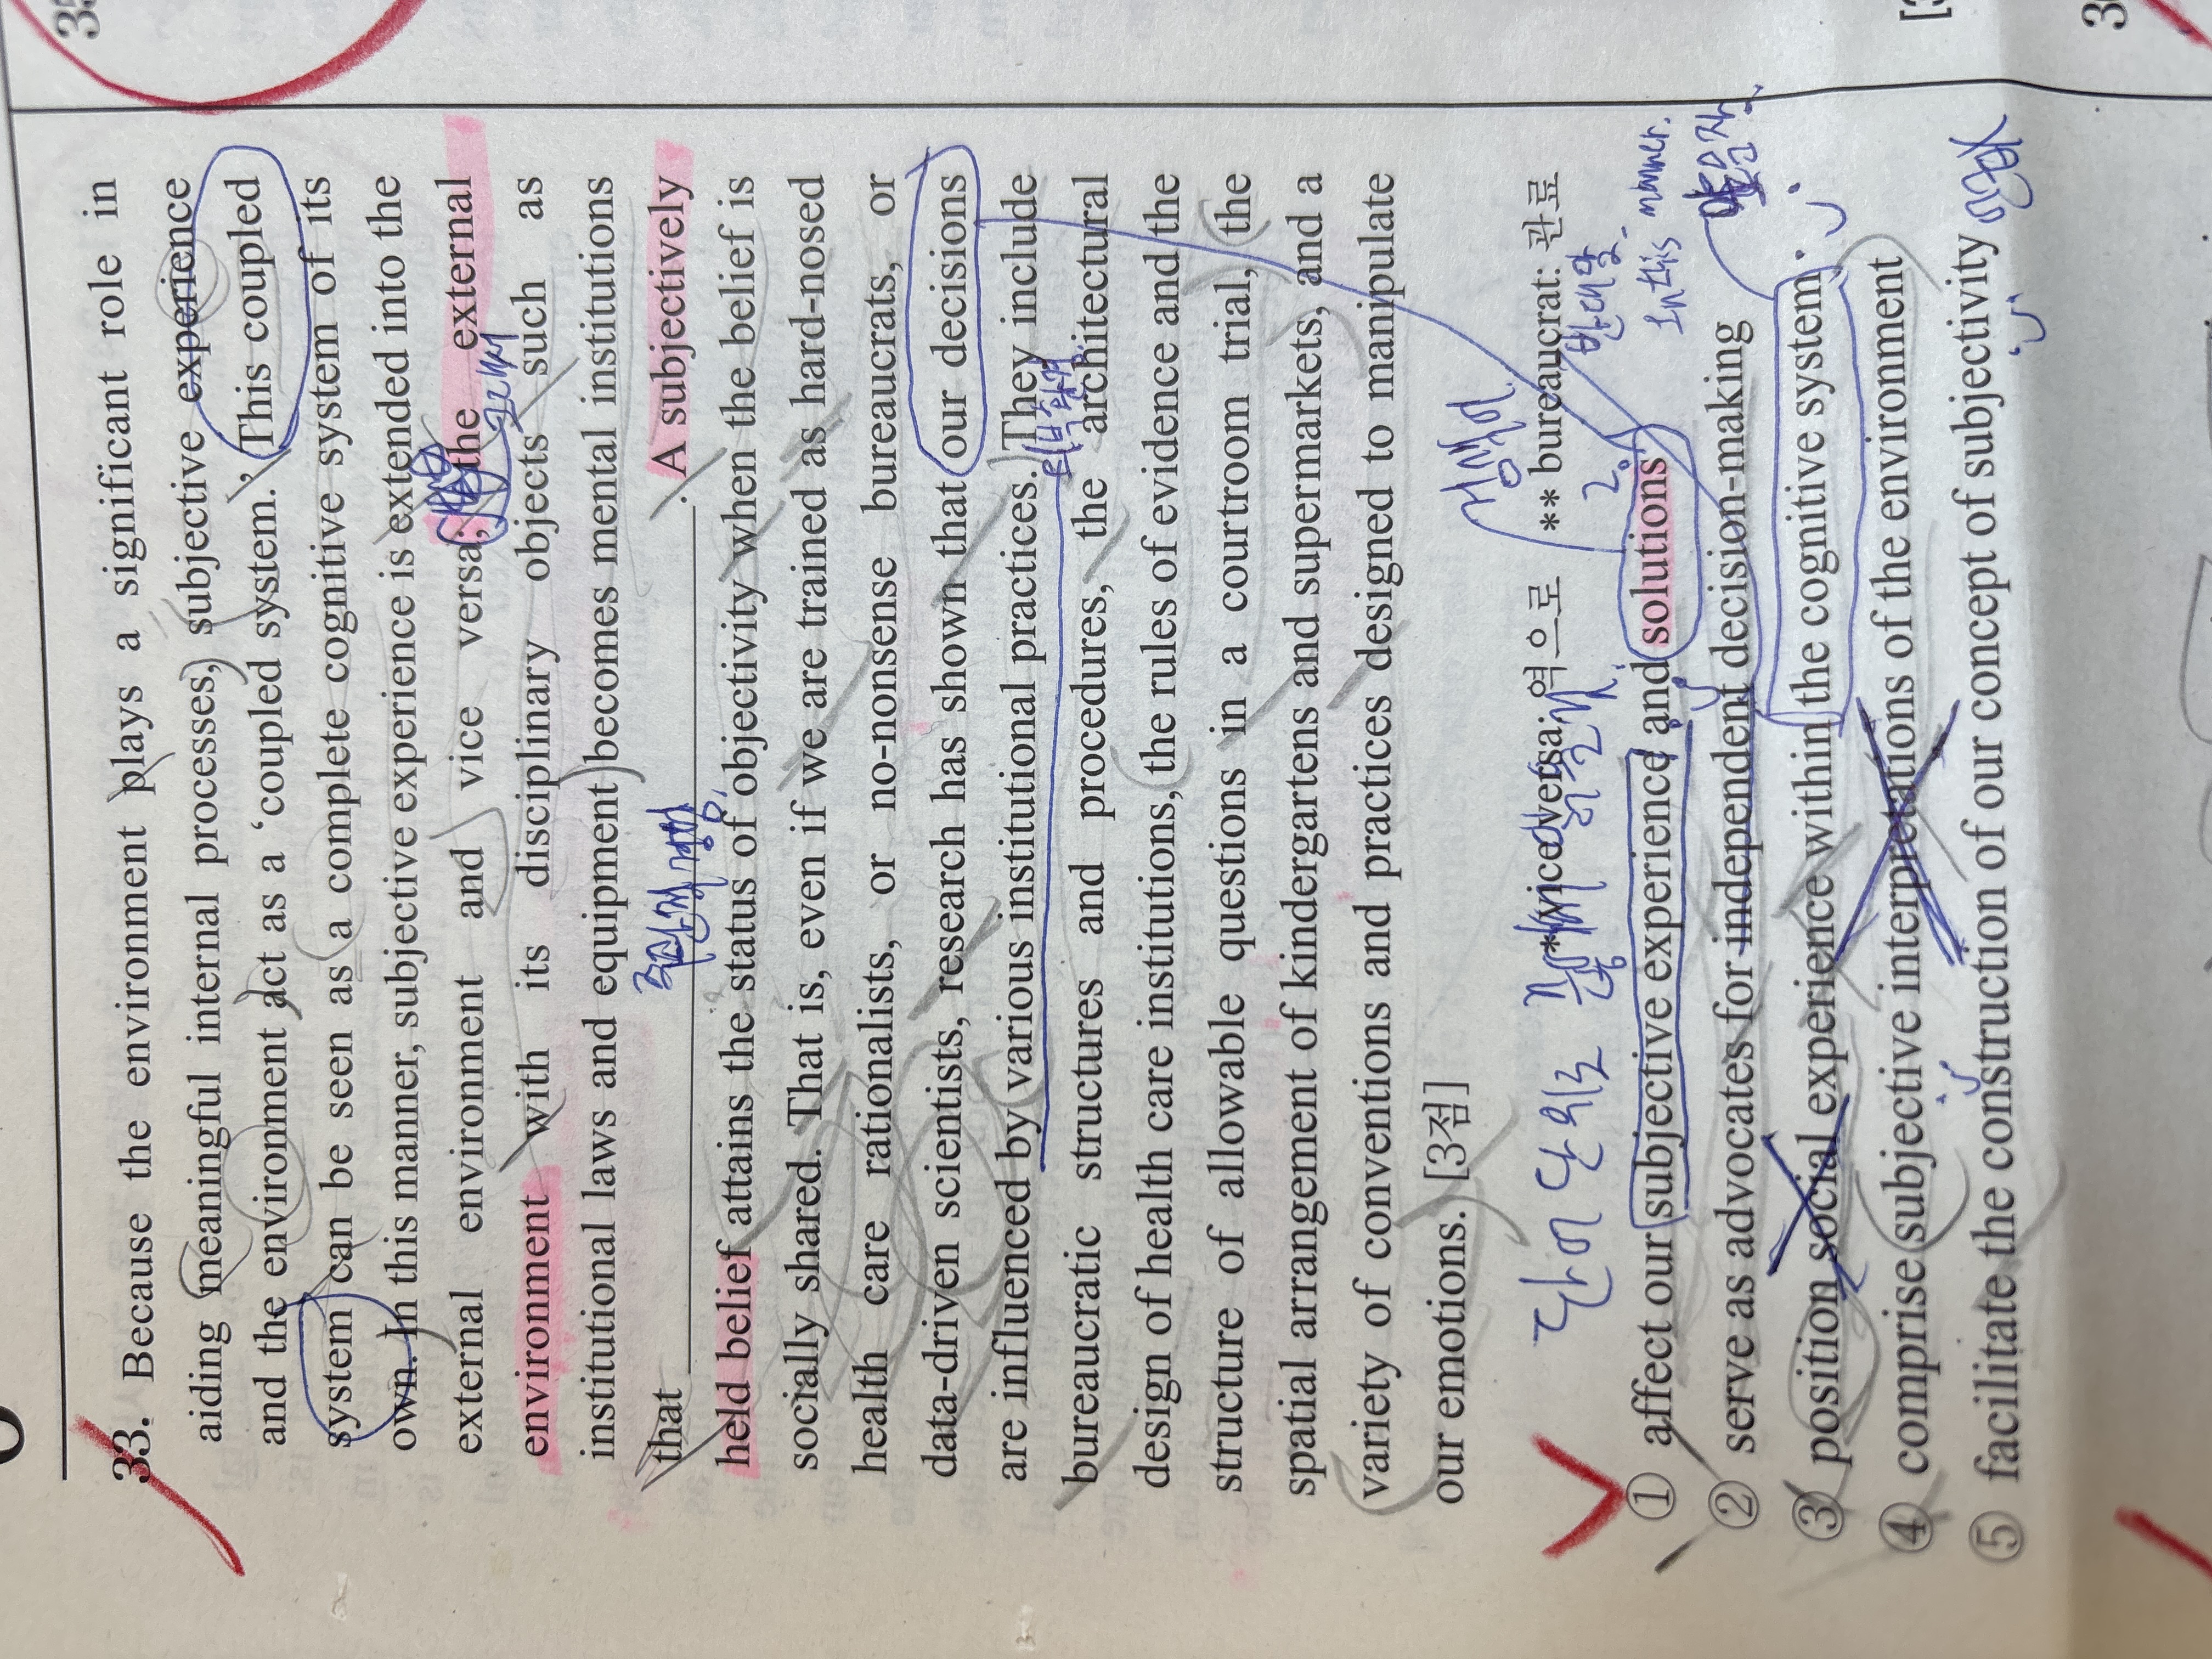 33. Because the environment plays a significant role in
aiding meaningful internal processes, subjective experience
and the environment act as a ‘coupled system.’ This coupled
system can be seen as a complete cognitive system of its
own. In this manner, subjective experience is extended into the
external environment and vice versa; the external
environment with its disciplinary objects such as
institutional laws and equipment becomes mental institutions
that . A subjectively
held belief attains the status of objectivity when the belief is
socially shared. That is, even if we are trained as hard-nosed
health care rationalists, or no-nonsense bureaucrats, or
data-driven scientists, research has shown that our decisions
are influenced by various institutional practices. They include
bureaucratic structures and procedures, the architectural
design of health care institutions, the rules of evidence and the
structure of allowable questions in a courtroom trial, the
spatial arrangement of kindergartens and supermarkets, and a
variety of conventions and practices designed to manipulate
our emotions. [3점]
* vice versa: 역으로 ** bureaucrat: 관료
단어 단위로
반대말.
In this manner.
① affect our subjective experience and solutions
② serve as advocates for independent decision-making
③ position social experience within the cognitive system
④ comprise subjective interpretations of the environment
⑤ facilitate the construction of our concept of subjectivity